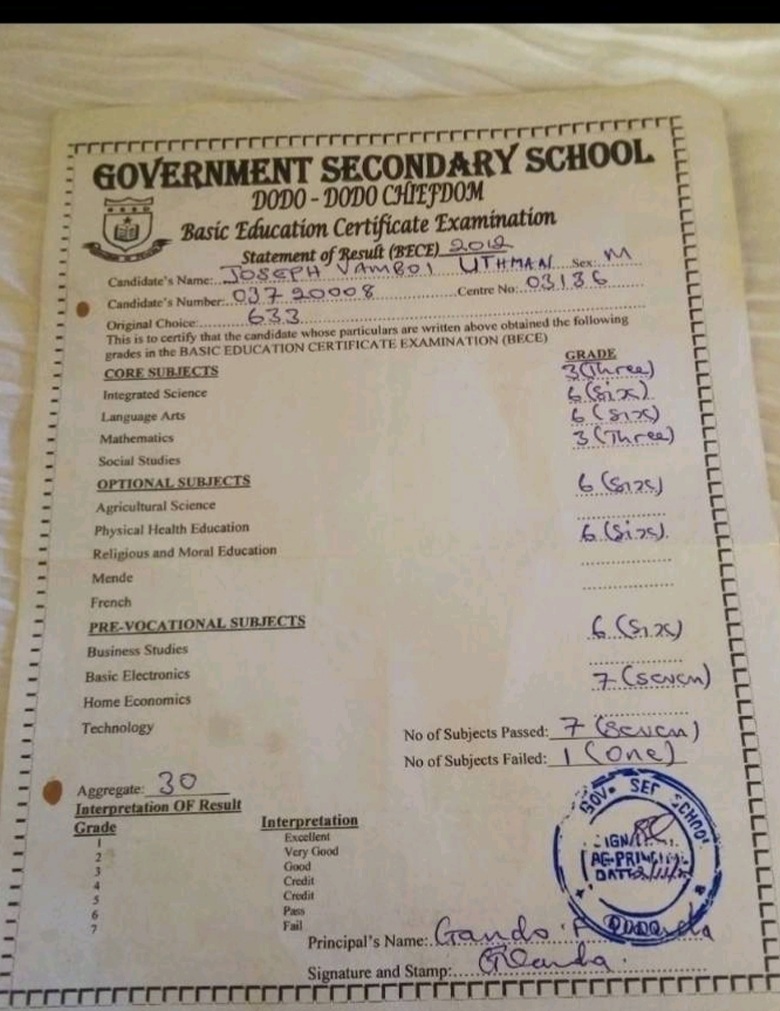 GOVERNMENT SECONDARY SCHOOL
DODO - DODO CHIEFDOM
Basic Education Certificate Examination
Statement of Result (BECE) 2012
Candidate's Name: JOSEPH VAMBOI UTHMAN Sex: M
Candidate's Number: 03720008 Centre No: 03136
Original Choice: 633
This is to certify that the candidate whose particulars are written above obtained the following
grades in the BASIC EDUCATION CERTIFICATE EXAMINATION (BECE)
CORE SUBJECTS GRADE
Integrated Science 3 (Three)
Language Arts 6 (Six)
Mathematics 6 (Six)
Social Studies 3 (Three)
OPTIONAL SUBJECTS
Agricultural Science 6 (Six)
Physical Health Education
Religious and Moral Education 6 (Six)
Mende
French
PRE-VOCATIONAL SUBJECTS
Business Studies 6 (Six)
Basic Electronics
Home Economics 7 (Seven)
Technology
No of Subjects Passed: 7 (Seven)
No of Subjects Failed: 1 (One)
Aggregate: 30
Interpretation OF Result
Grade Interpretation
1 Excellent
2 Very Good
3 Good
4 Credit
5 Credit
6 Pass
7 Fail
GOV. SEC SCHOOL
SIGN
AG-PRINCIPAL
DATE
DODO
Principal's Name: Gando F
Signature and Stamp: